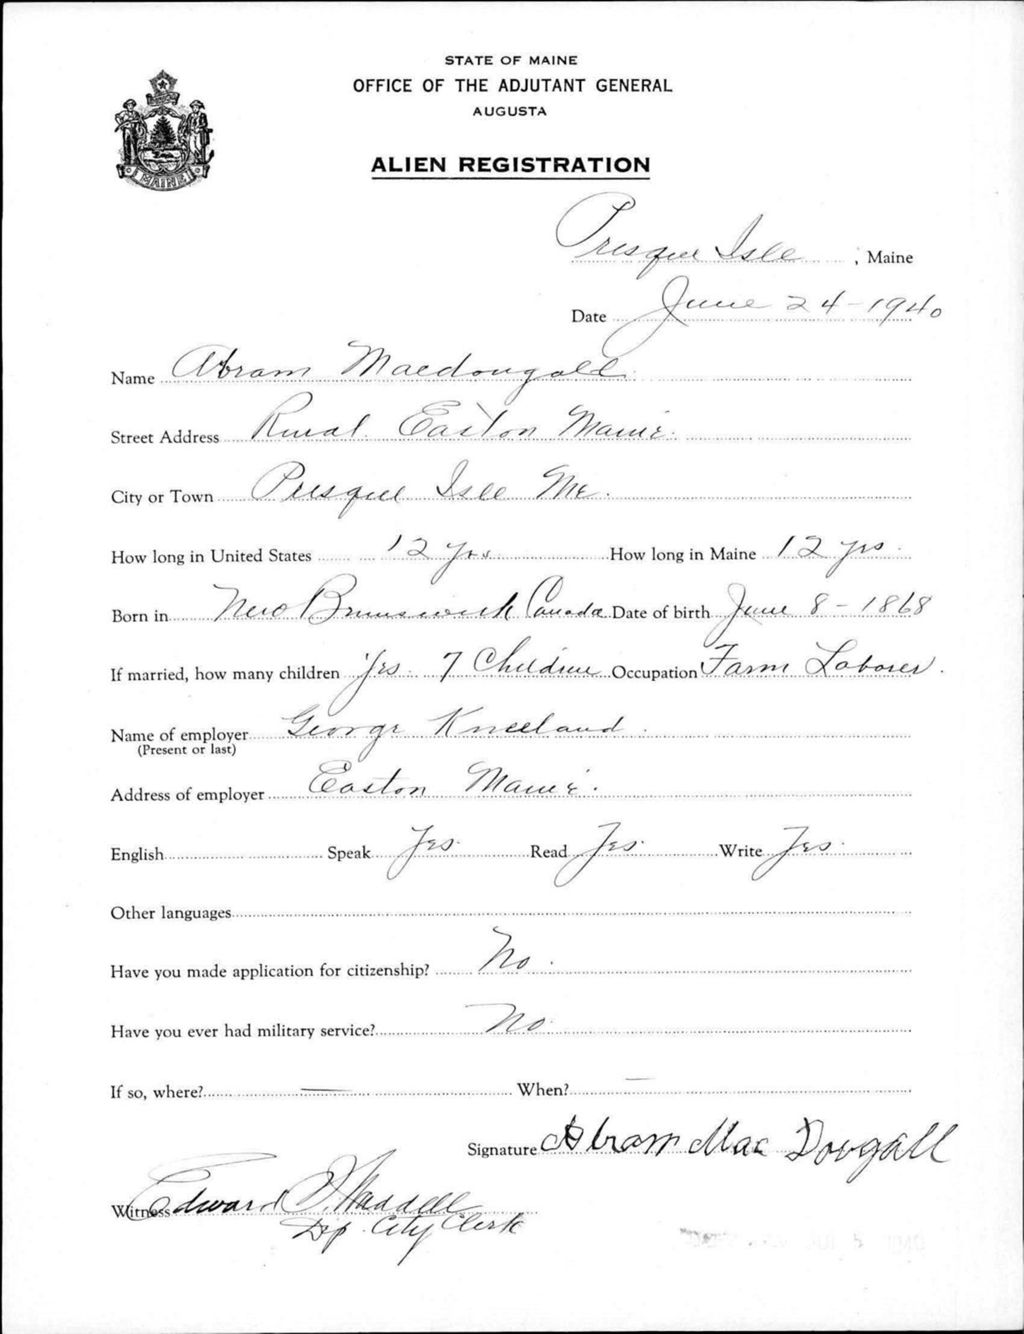 STATE OF MAINE
OFFICE OF THE ADJUTANT GENERAL
AUGUSTA
MAINE
ALIEN REGISTRATION
Presque Isle, Maine
Date June 24-1940
Name Abram Macdougall
Street Address Rural Easton Maine.
City or Town Presque Isle Me.
How long in United States 12 yrs How long in Maine 12 yrs
Born in New Brunswick Canada Date of birth June 8-1868
If married, how many children Yes 7 Children Occupation Farm Laborer.
Name of employer George Kneeland
(Present or last)
Address of employer Easton Maine.
English Speak Yes Read Yes Write Yes
Other languages
Have you made application for citizenship? No.
Have you ever had military service? No
If so, where? — When? —
Signature Abram Mac Dougall
Witness Edward Waddell
Dep. City Clerk